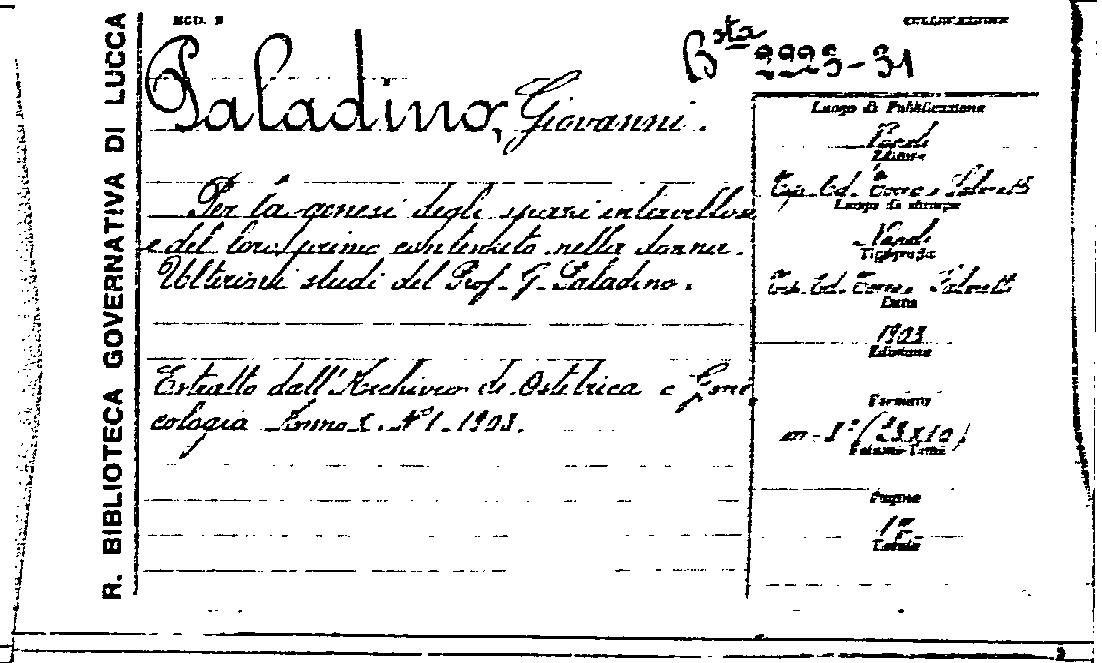 R. BIBLIOTECA GOVERNATIVA DI LUCCA
MOD. 8
COLLOCAZIONE
Bsta 2225-31
Paladino, Giovanni.
Per la genesi degli spazi intervillosi
e del loro primo contenuto nella donna.
Ulteriori studi del Prof. G. Paladino.
Estratto dall'Archivio di Ostetrica e Gine
cologia Anno X. N° 1. 1903.
Luogo di Pubblicazione
Napoli
Editore
Tip. Ed. Tocco e Salvietti
Luogo di stampa
Napoli
Tipografia
Tip. Ed. Tocco e Salvietti
Data
1903
Edizione
Formato
in-8° (23x10)
Volume-Tomo
Pagine
Tavole